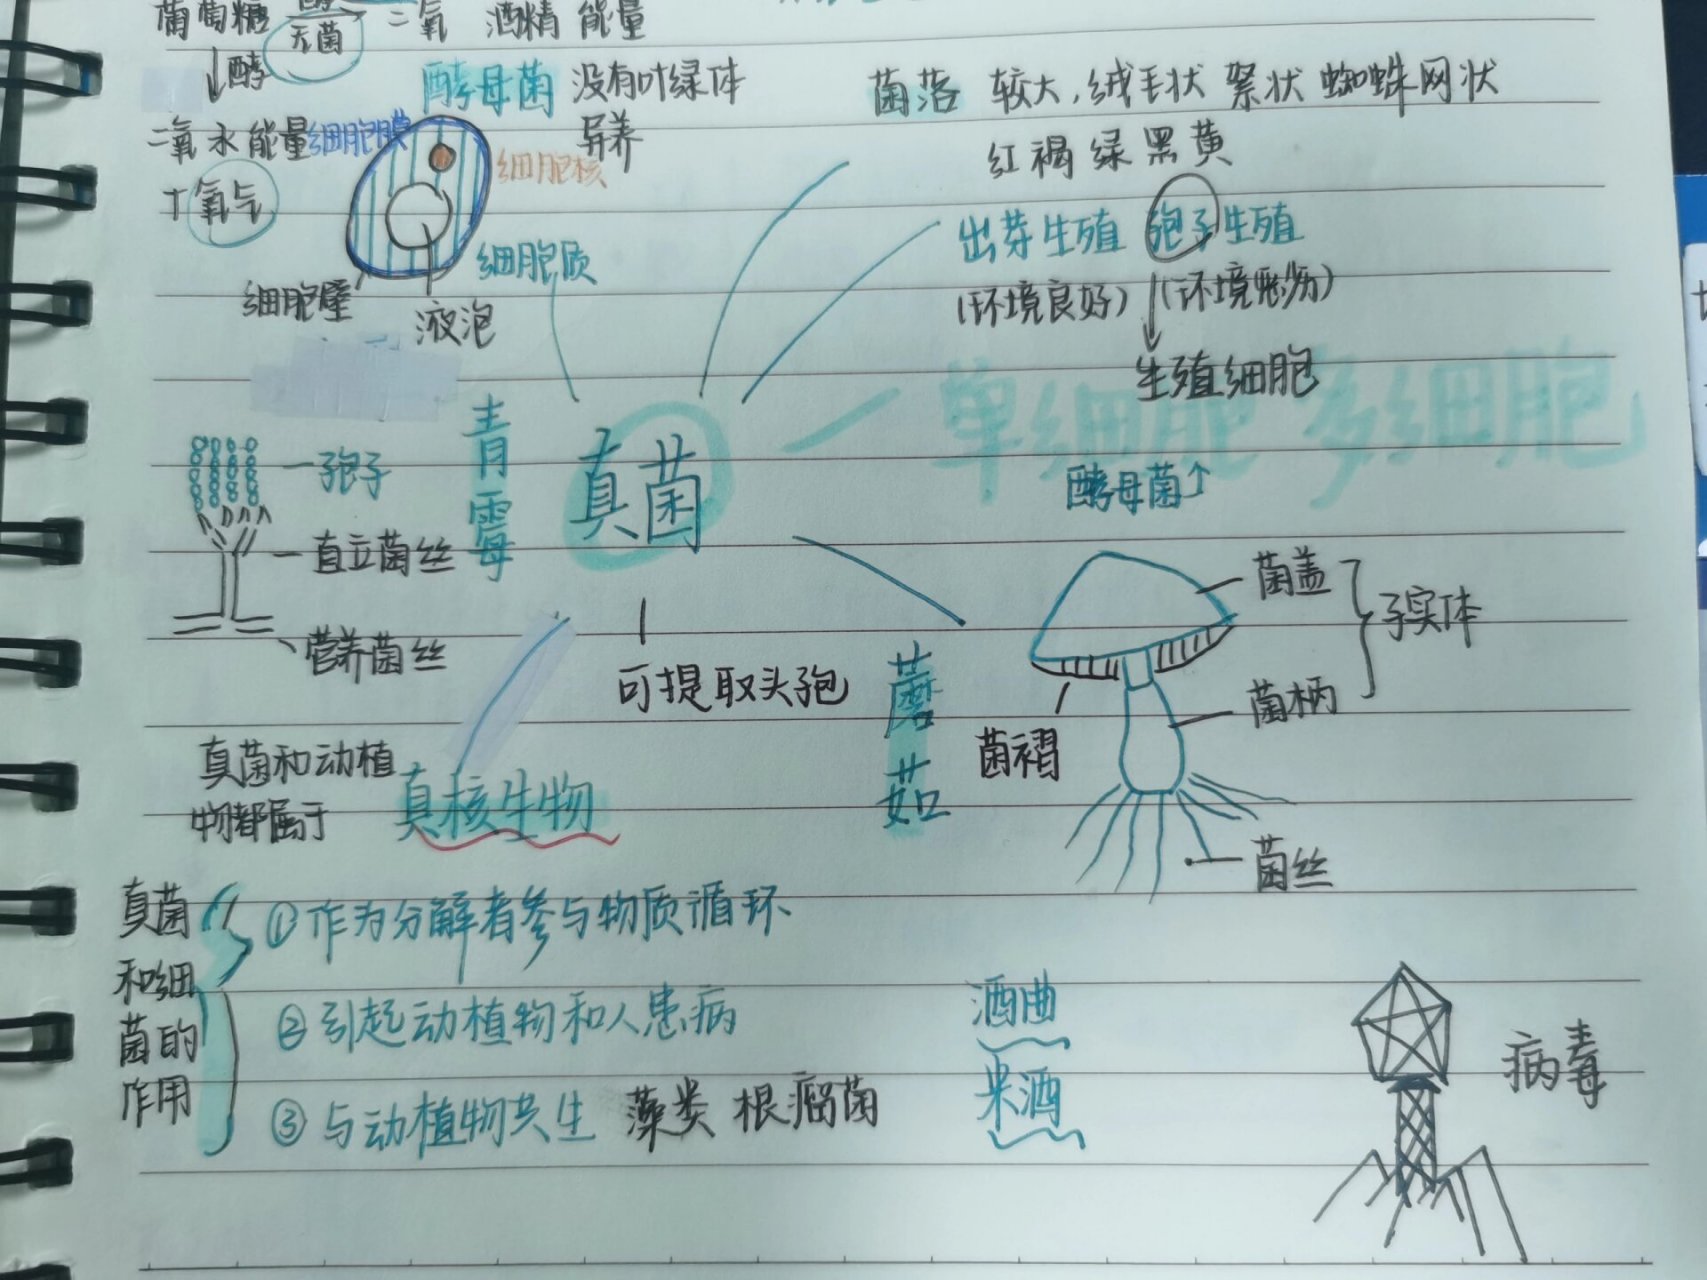 葡萄糖 酵 无菌 二氧 酒精 能量
↓酵
酵母菌 没有叶绿体
异养
二氧 水 能量
+氧气
细胞膜
细胞核
细胞质
细胞壁
液泡
菌落 较大,绒毛状 絮状 蜘蛛网状
红褐绿黑黄
出芽生殖 孢子生殖
(环境良好) (环境恶劣)
生殖细胞
真菌 — 单细胞 多细胞
酵母菌↑
青霉
孢子
直立菌丝
营养菌丝
可提取头孢
蘑菇
菌盖
子实体
菌柄
菌褶
菌丝
真菌和动植
物都属于 真核生物
真菌
和细
菌的
作用
①作为分解者参与物质循环
②引起动植物和人患病
③与动植物共生 藻类 根瘤菌
酒曲
米酒
病毒